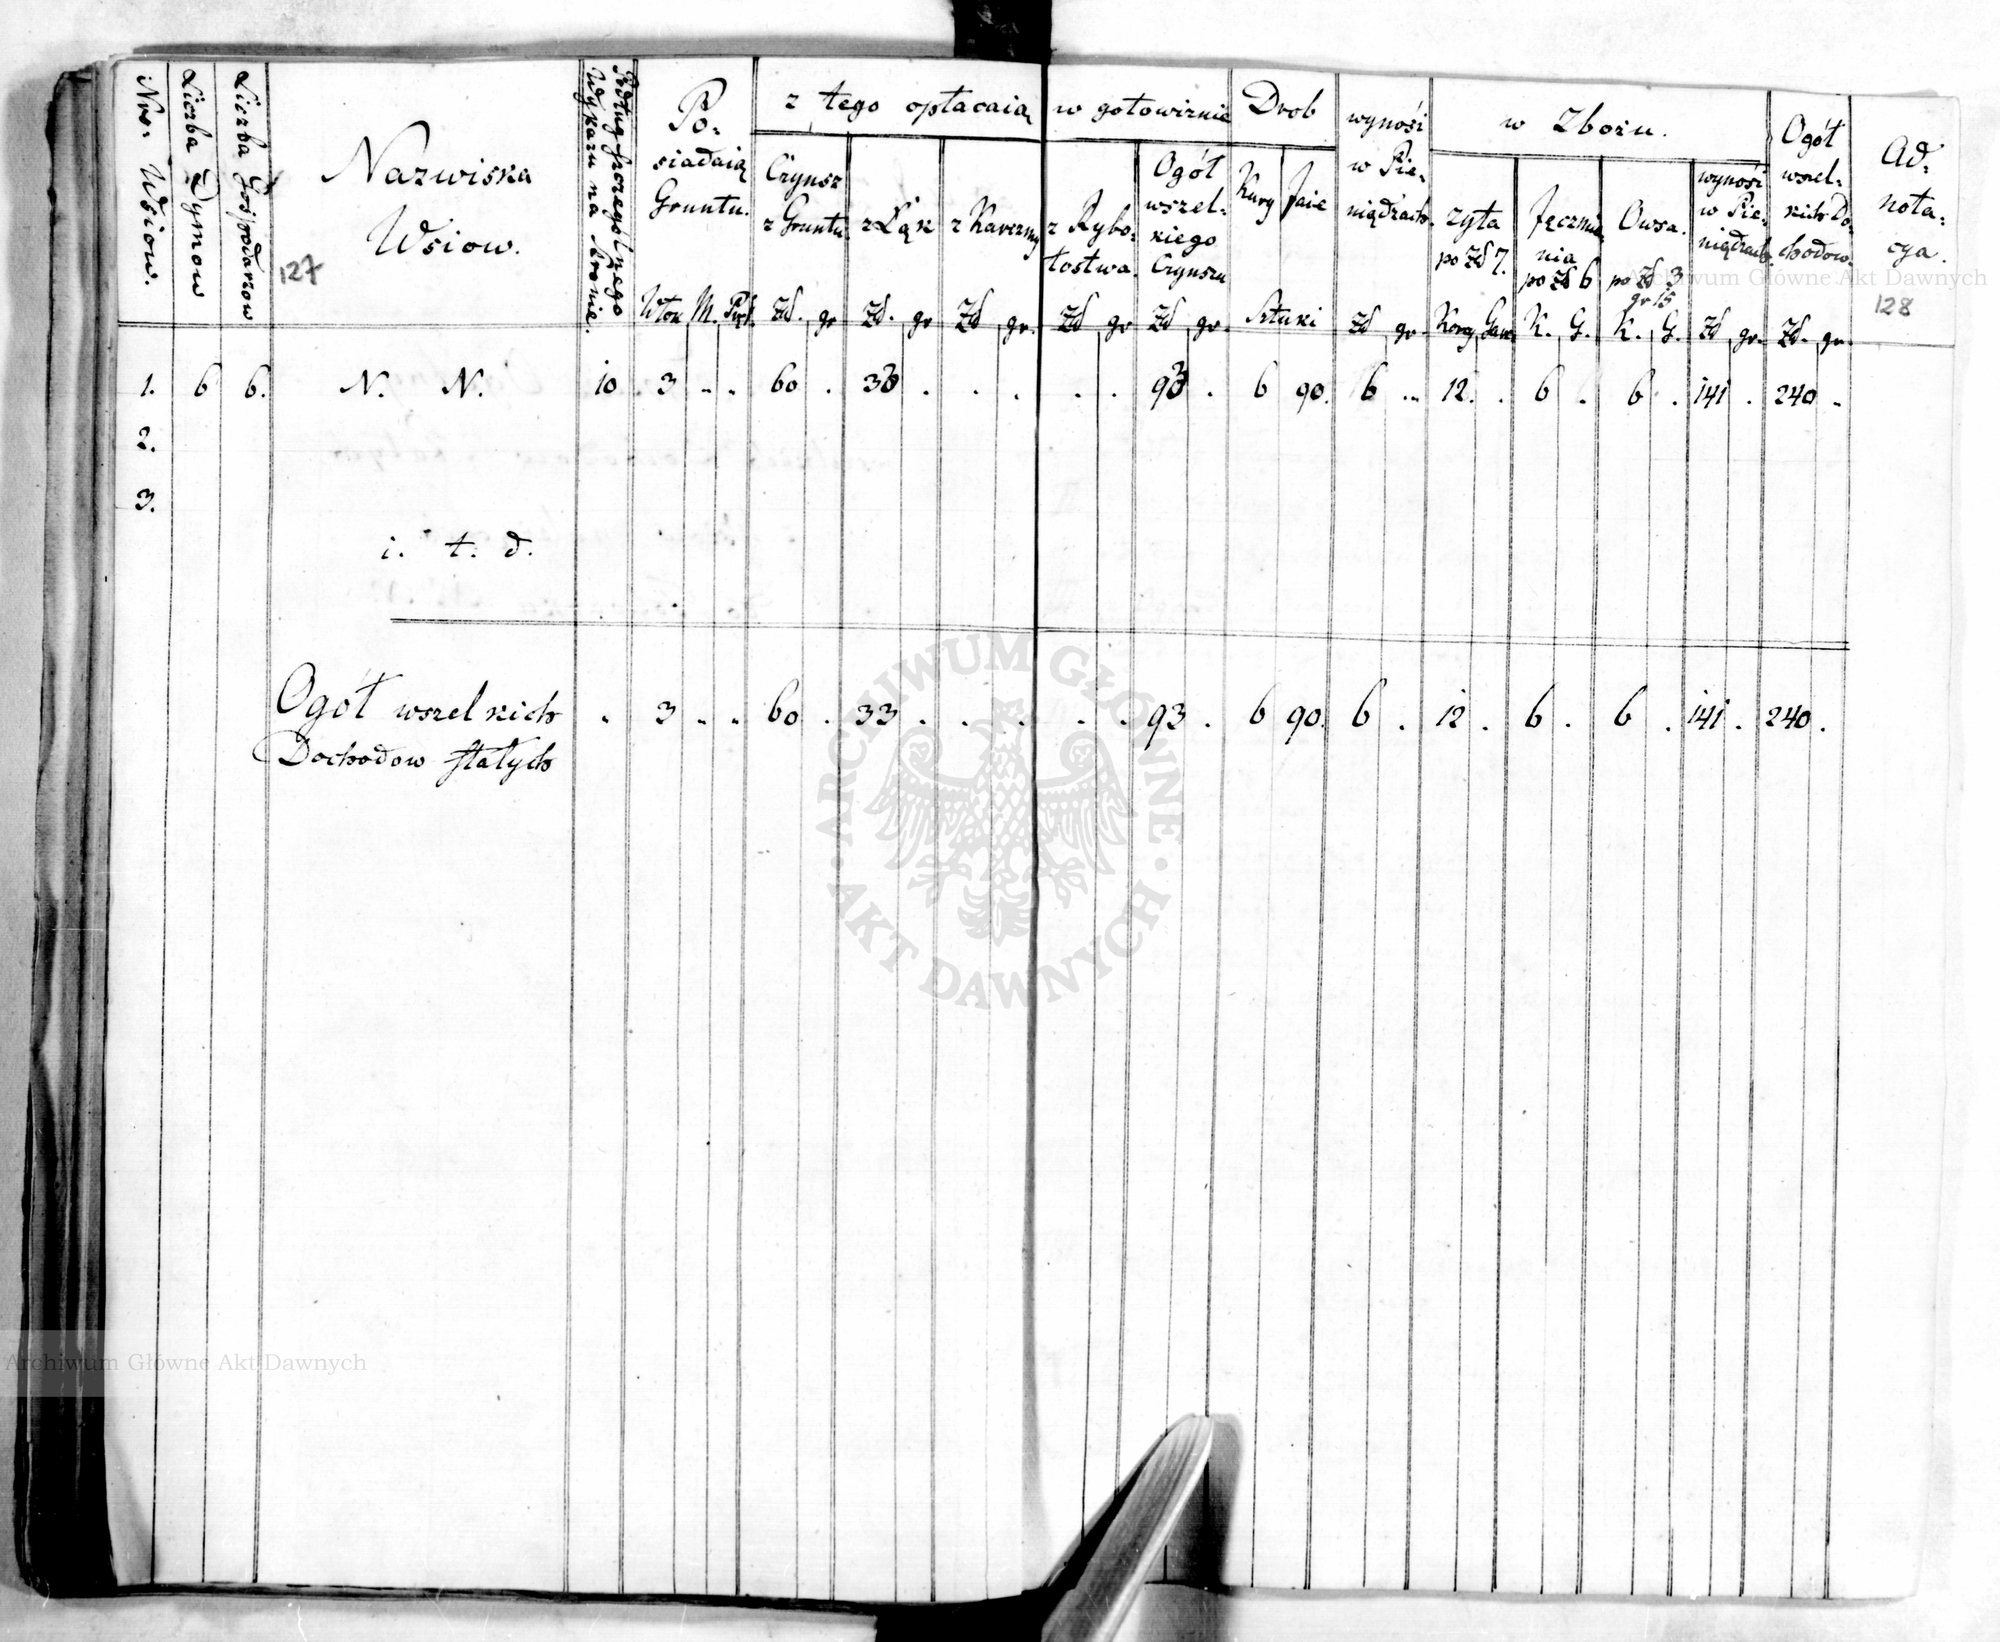 Nro. Wsiow.
Liczba Dymow
Liczba Gospodarzow
127
Nazwiska
Wsiow.
Podług szczegolnego
Wykazu na stronie.
Po-
siadaią
Gruntu.
Włok M. Pręt.
z tego opłacaią w gotowiznie
Czynsz
z Gruntu
zł. gr
z Łąk
zł. gr
z Karczmy
zł gr.
z Rybo-
łostwa.
zł gr
Ogół
wszel-
kiego
Czynszu
zł gr.
Drob
Kury Jaie
Sztuki
wynośi
w Pie-
niądzach.
zł gr.
w Zbożu.
zyta
po zł 7.
Korcy Garn.
Jęczmie-
nia
po zł 6
K. G.
Owsa.
po zł 3
gr 15
K. G.
wynośi
w Pie-
niądzach.
zł gr.
Ogół
wszel-
kich Do-
chodow.
zł. gr.
Ad-
nota-
cya.
128
1. 6 6. N. N. 10 3 . . 60 . 33 . . . . . 93 . 6 90. 6 .. 12. . 6 . 6 . 141 . 240 .
2.
3.
i. t. d.
Ogół wszelkich . 3 . . 60 . 33 . . . . . 93 . 6 90. 6 . 12 . 6 . 6 . 141 . 240 .
Dochodow stałych
Archiwum Główne Akt Dawnych
ARCHIWUM GŁÓWNE
AKT DAWNYCH
Archiwum Główne Akt Dawnych